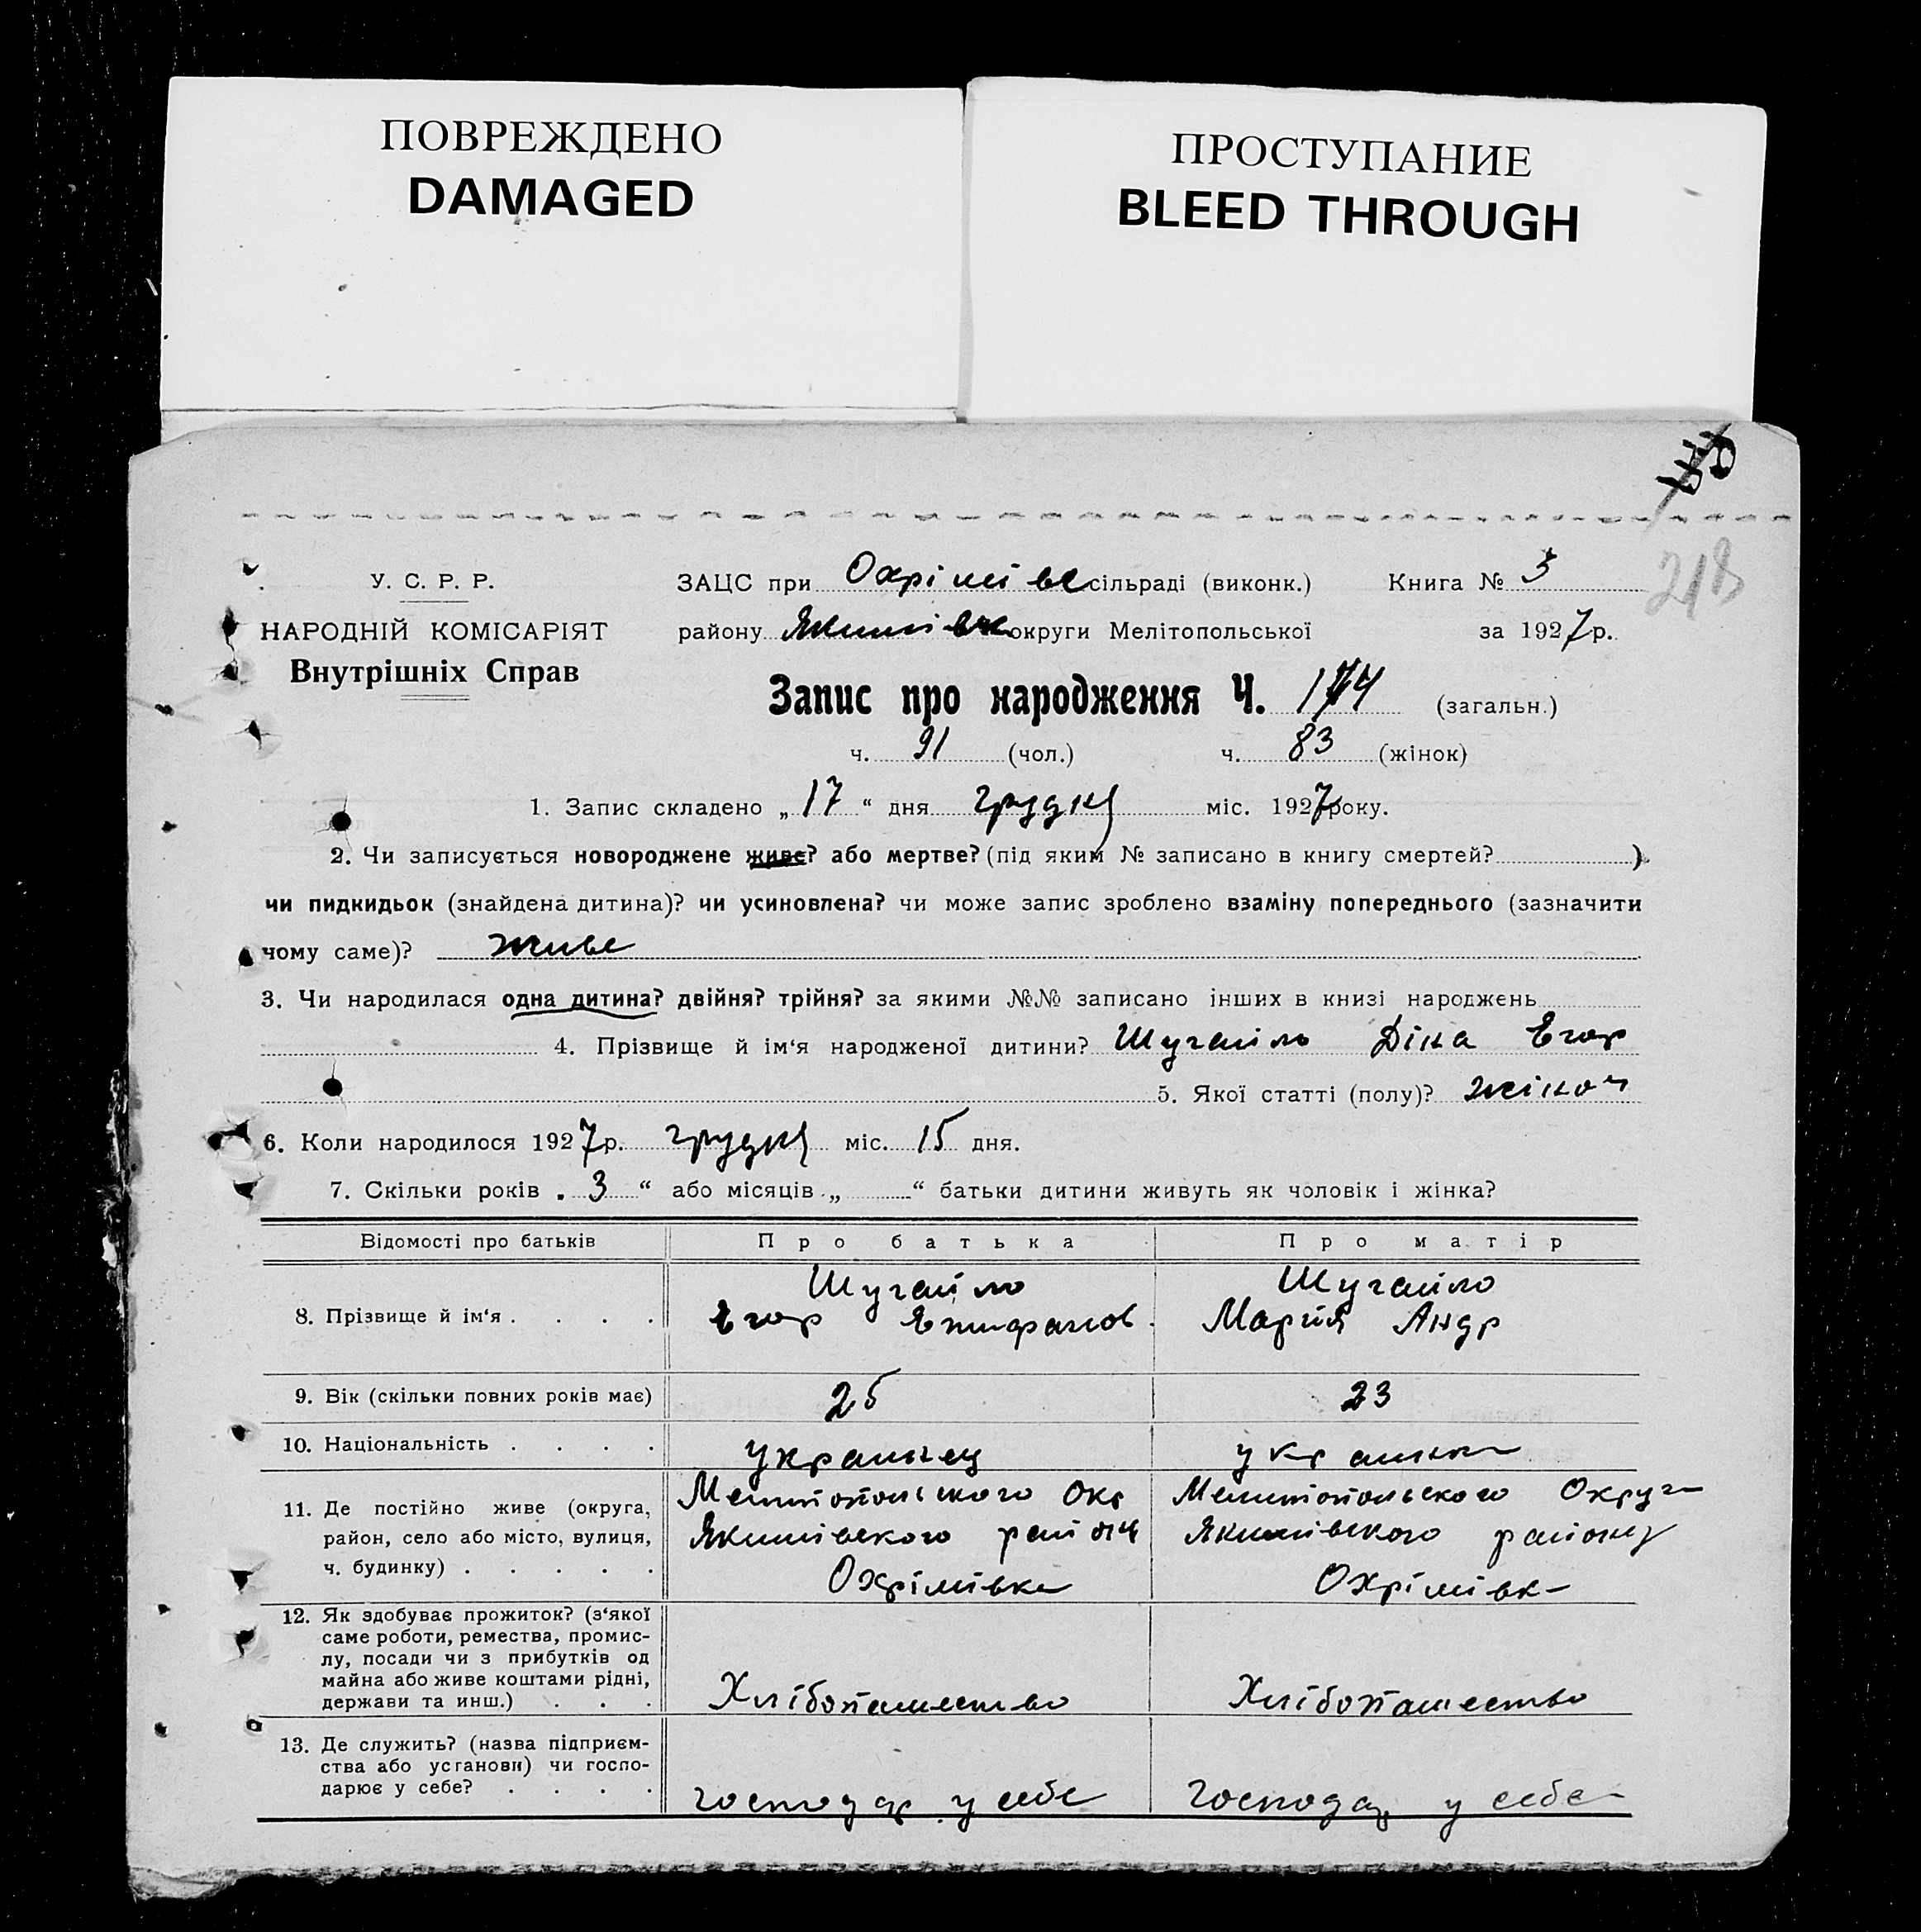 ПОВРЕЖДЕНО
DAMAGED
ПРОСТУПАНИЕ
BLEED THROUGH
218
У. С. Р. Р.
НАРОДНІЙ КОМІСАРІЯТ
Внутрішніх Справ
ЗАЦС при Охрімівс сільраді (виконк.) Книга № 3
району Якимівск округи Мелітопольської за 1927 р.
Запис про народження Ч. 174 (загальн.)
ч. 91 (чол.) ч. 83 (жінок)
1. Запис складено „ 17 “ дня грудня міс. 1927 року.
2. Чи записується новороджене живе? або мертве? (під яким № записано в книгу смертей? )
чи пидкидьок (знайдена дитина)? чи усиновлена? чи може запис зроблено взаміну попереднього (зазначити
чому саме)? живе
3. Чи народилася одна дитина? двійня? трійня? за якими №№ записано інших в книзі народжень
4. Прізвище й ім‘я народженої дитини? Шугайло Діна Егор
5. Якої статті (полу)? жіноч
6. Коли народилося 1927 р. грудня міс. 15 дня.
7. Скільки років „ 3 “ або місяців „ “ батьки дитини живуть як чоловік і жінка?
Відомості про батьків Про батька Про матір
8. Прізвище й ім‘я . . . .
Шугайло
Егор Епифанов.
Шугайло
Мария Андр
9. Вік (скільки повних років має) 25 23
10. Національність . . . . украинец украинка
11. Де постійно живе (округа,
район, село або місто, вулиця,
ч. будинку) . . . . .
Мелитопольского Окр
Якимівского району
Охрімівка
Мелитопольского Округи
Якимівского району
Охрімівк
12. Як здобуває прожиток? (з‘якої
саме роботи, ремества, промис-
лу, посади чи з прибутків од
майна або живе коштами рідні,
держави та инш.) . . .
Хлібопашество
Хлібопашество
13. Де служить? (назва підприєм-
ства або установи) чи госпо-
дарює у себе? . . . .
господар у себе
господар у себе